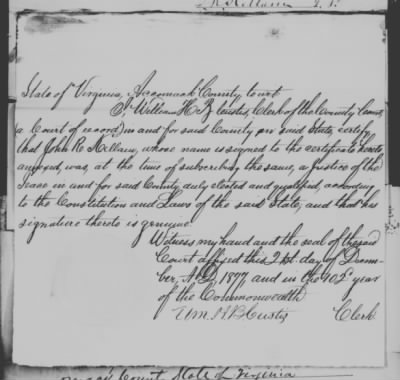 State of Virginia, Accomack County, to wit
I, William H. B. Custis, Clerk of the County Court
(a Court of record) in and for said County and said State, certify
that John R. Mellam, whose name is signed to the certificate hereto
annexed, was, at the time of subscribing the same, a Justice of the
Peace in and for said County, duly elected and qualified, according
to the Constitution and Laws of the said State, and that his
signature thereto is genuine.
Witness my hand and the seal of the said
Court affixed this 21st. day of Decem-
ber, A.D. 1877, and in the 102d year
of the Commonwealth
Wm H B Custis Clerk
Court State of Virginia